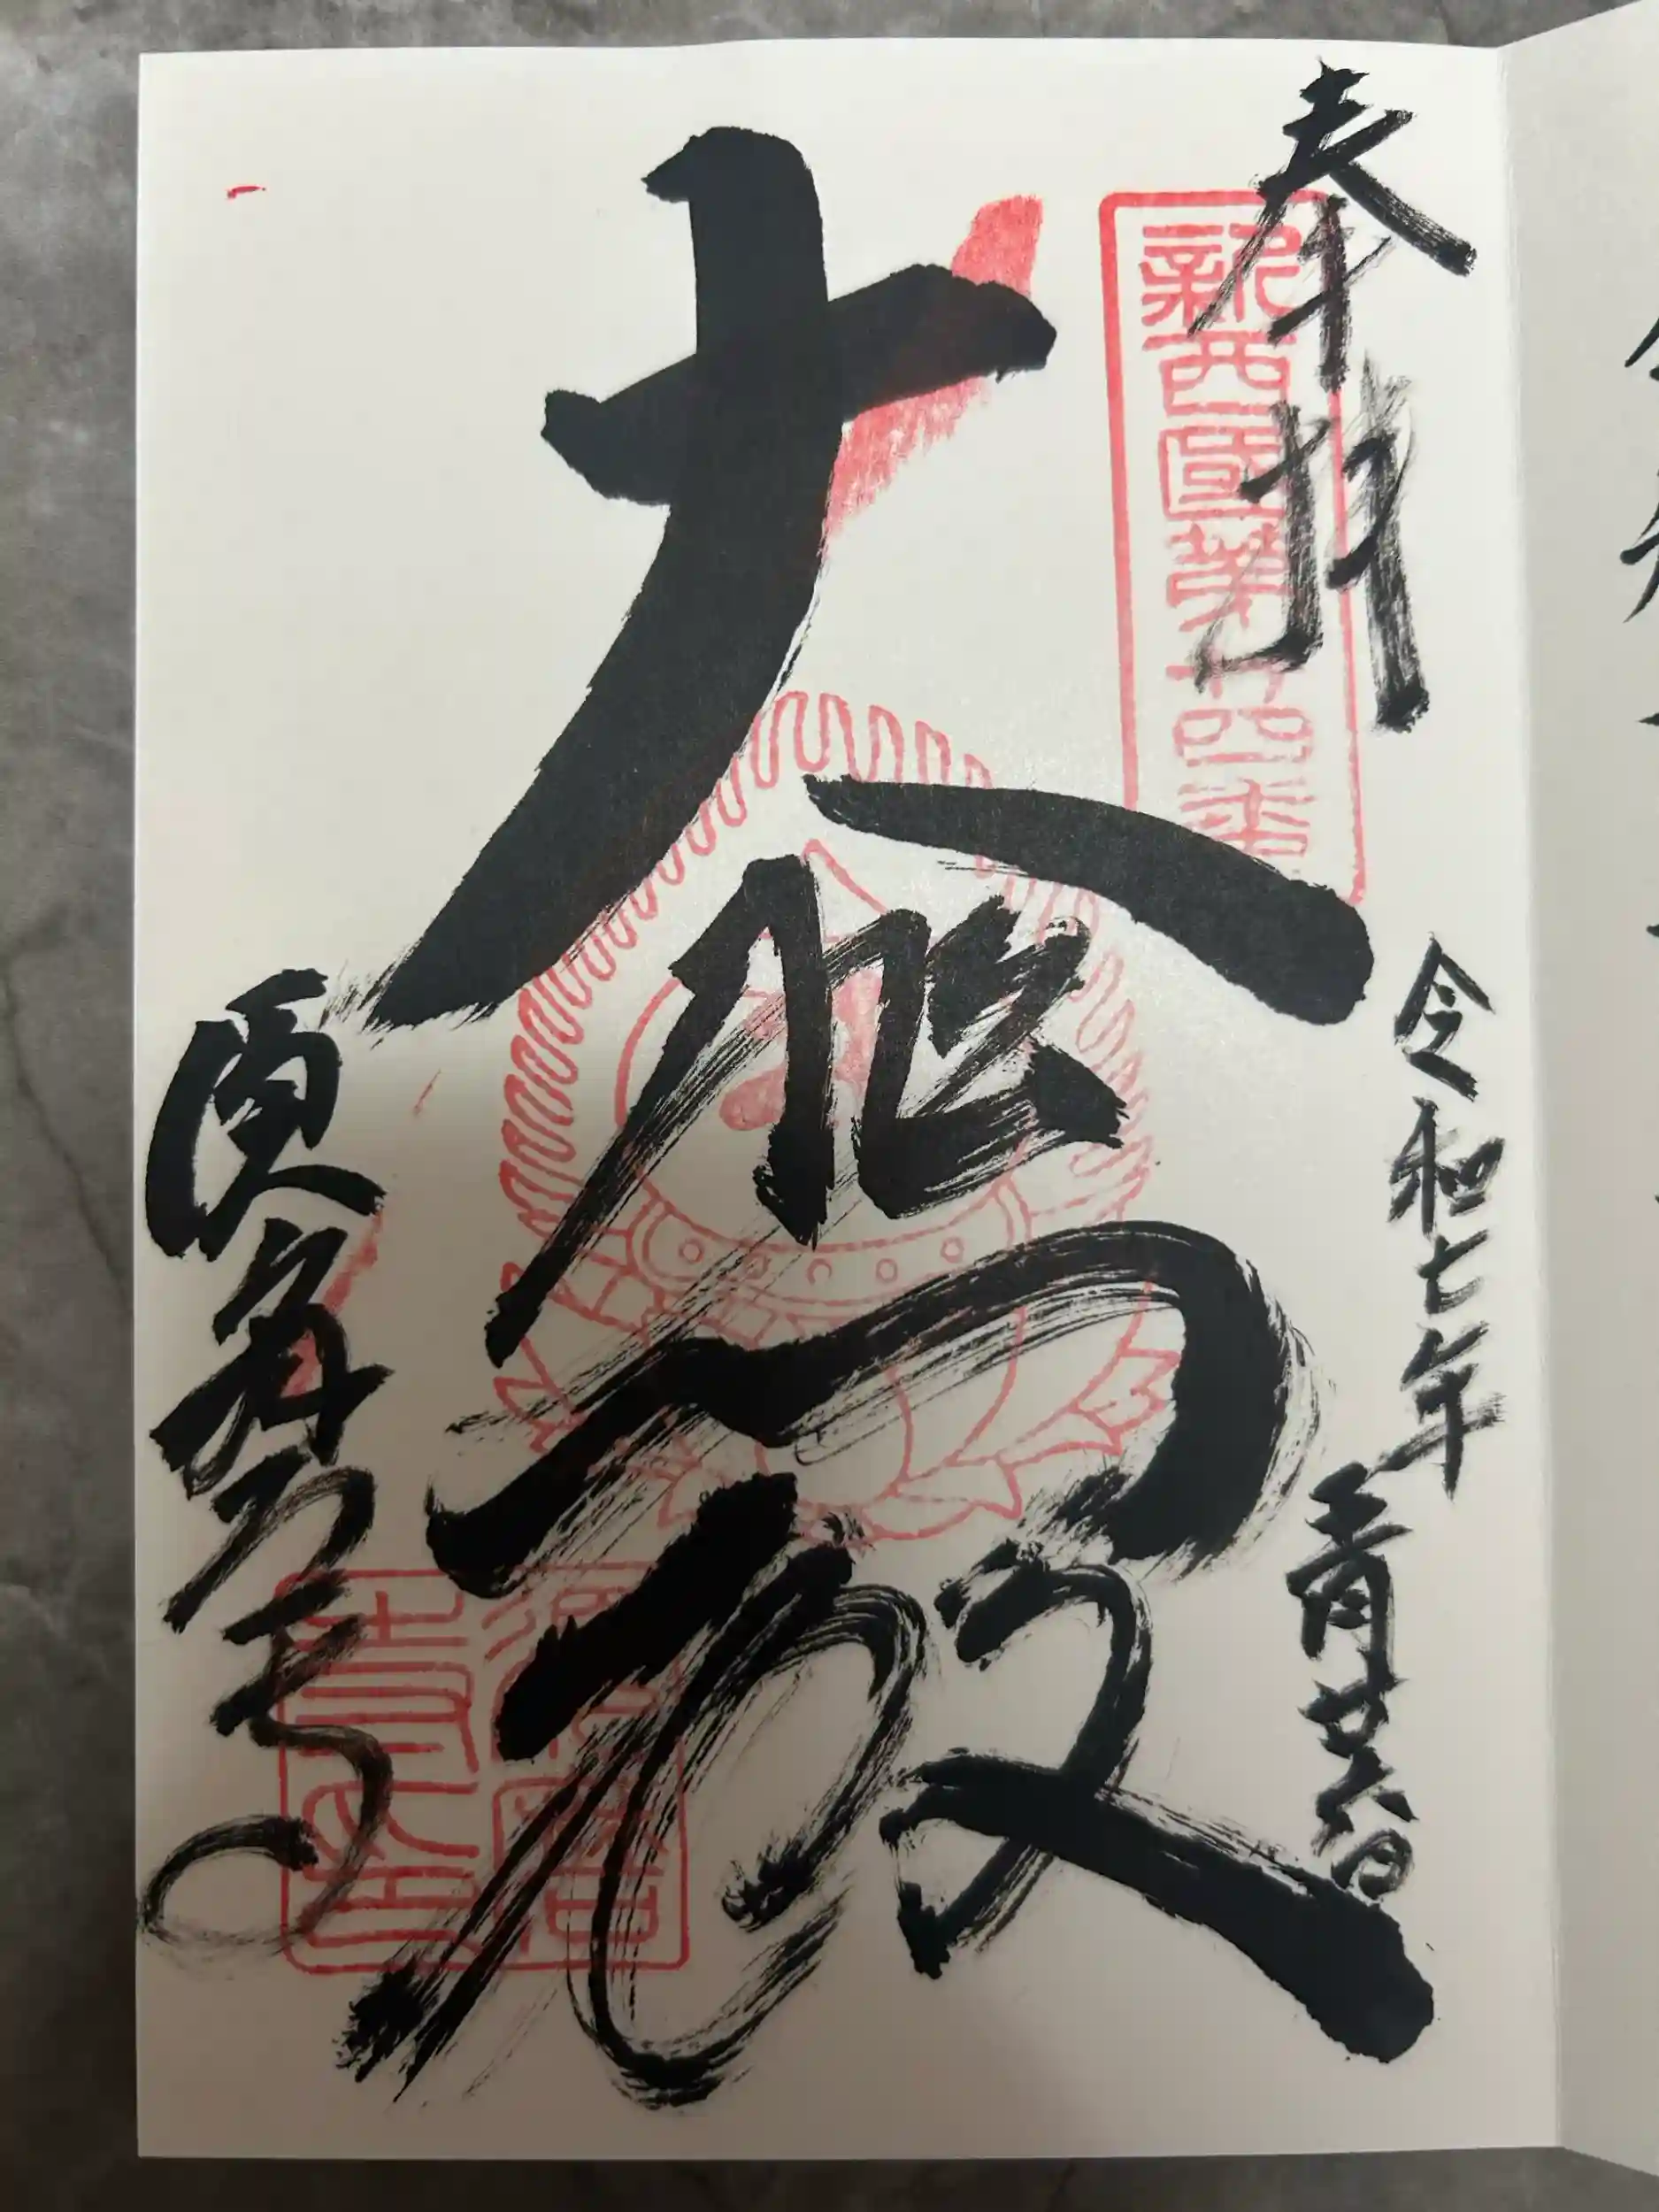 奉拝
新西國第廿四番
令和七年三月廿六日
大悲殿
須磨寺